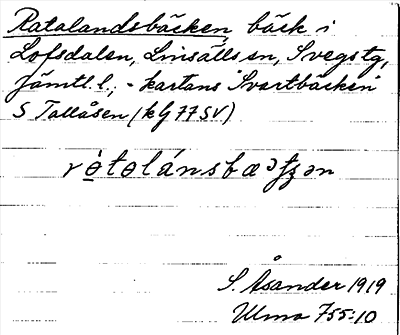 Ratalandsbäcken, bäck i
Lofsdalen, Linsälls sn, Svegs tg,
Jämtl. l., - kartans "Svartbäcken"
S Tallåsen (kG 77 SV)
S. Åsander 1919
Ulma 755:10